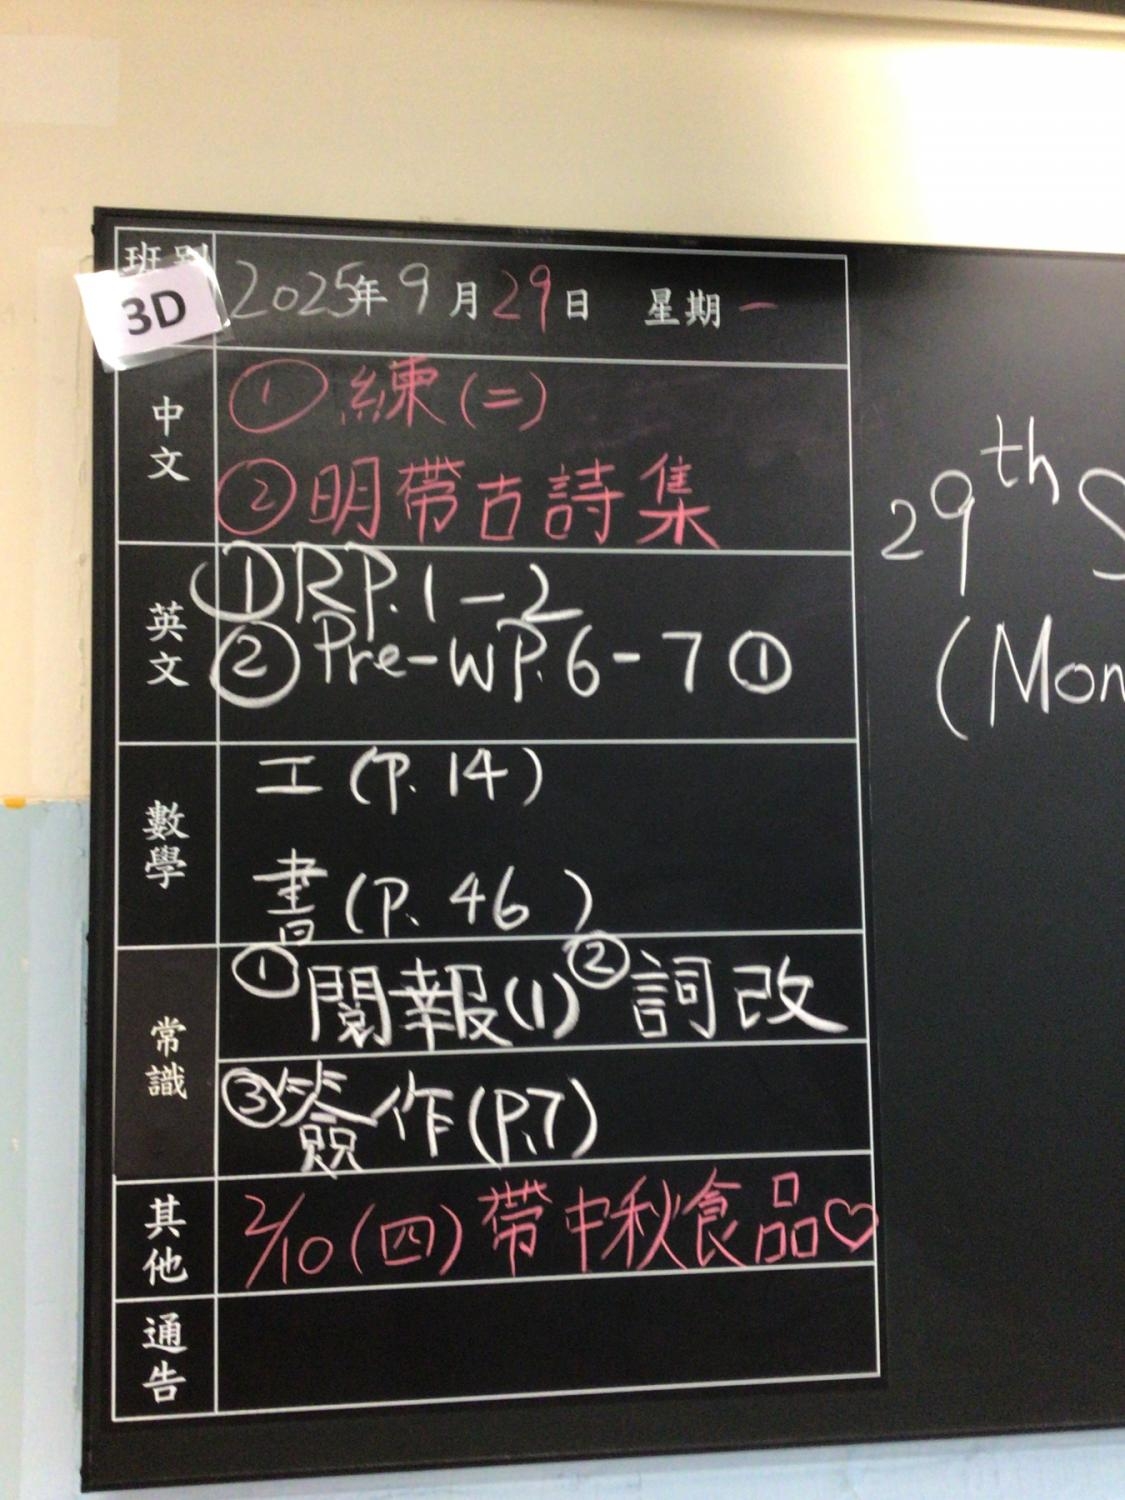 班別
3D
2025年9月29日 星期一
中文
① 練(二)
② 明帶古詩集
英文
① RP.1-2
② Pre-WP.6-7 ①
數學
工(P.14)
書(P.46)
常識
① 閱報(1) ② 詞改
③ 簽作(P.7)
其他
2/10(四)帶中秋食品♡
通告
29th S
(Mon